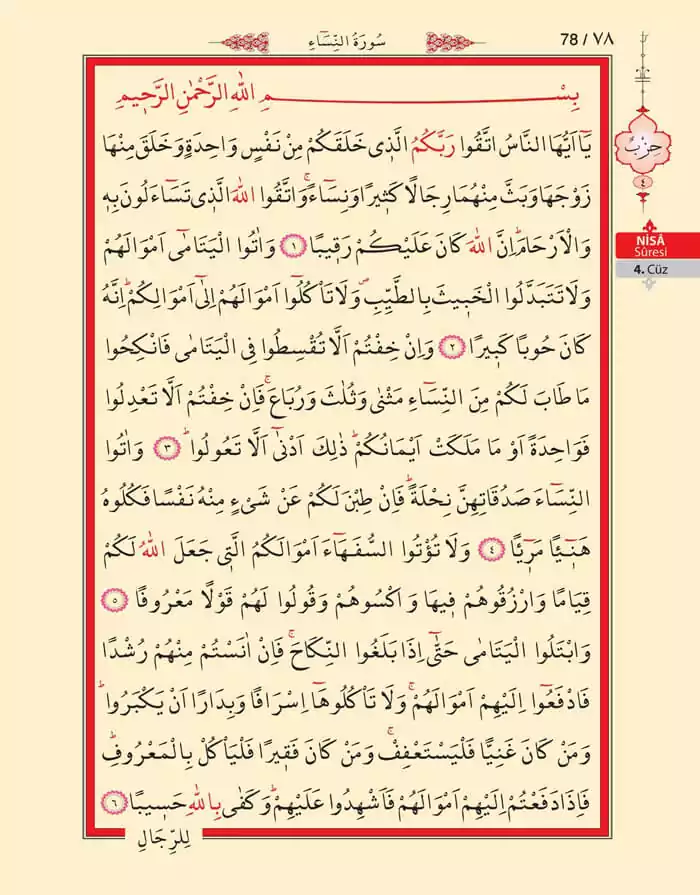 سُورَةُ النِّسَٓاءِ
78 / ٧٨
بِسْــــــــمِ اللّٰهِ الرَّحْمٰنِ الرَّح۪يمِ
يَٓا اَيُّهَا النَّاسُ اتَّقُوا رَبَّكُمُ الَّذ۪ي خَلَقَكُمْ مِنْ نَفْسٍ وَاحِدَةٍ وَخَلَقَ مِنْهَا
زَوْجَهَا وَبَثَّ مِنْهُمَا رِجَالًا كَث۪يرًا وَنِسَٓاءًۚ وَاتَّقُوا اللّٰهَ الَّذ۪ي تَسَٓاءَلُونَ بِه۪
وَالْاَرْحَامَۜ اِنَّ اللّٰهَ كَانَ عَلَيْكُمْ رَق۪يبًا ﴿١﴾ وَاٰتُوا الْيَتَامٰٓى اَمْوَالَهُمْ
وَلَا تَتَبَدَّلُوا الْخَب۪يثَ بِالطَّيِّبِۖ وَلَا تَأْكُلُٓوا اَمْوَالَهُمْ اِلٰٓى اَمْوَالِكُمْۜ اِنَّهُ
كَانَ حُوبًا كَب۪يرًا ﴿٢﴾ وَاِنْ خِفْتُمْ اَلَّا تُقْسِطُوا فِي الْيَتَامٰى فَانْكِحُوا
مَا طَابَ لَكُمْ مِنَ النِّسَٓاءِ مَثْنٰى وَثُلٰثَ وَرُبَاعَۚ فَاِنْ خِفْتُمْ اَلَّا تَعْدِلُوا
فَوَاحِدَةً اَوْ مَا مَلَكَتْ اَيْمَانُكُمْۜ ذٰلِكَ اَدْنٰٓى اَلَّا تَعُولُواۜ ﴿٣﴾ وَاٰتُوا
النِّسَٓاءَ صَدُقَاتِهِنَّ نِحْلَةًۜ فَاِنْ طِبْنَ لَكُمْ عَنْ شَيْءٍ مِنْهُ نَفْسًا فَكُلُوهُ
هَن۪ٓيـًٔا مَر۪ٓيـًٔا ﴿٤﴾ وَلَا تُؤْتُوا السُّفَهَٓاءَ اَمْوَالَكُمُ الَّت۪ي جَعَلَ اللّٰهُ لَكُمْ
قِيَامًا وَارْزُقُوهُمْ ف۪يهَا وَاكْسُوهُمْ وَقُولُوا لَهُمْ قَوْلًا مَعْرُوفًا ﴿٥﴾
وَابْتَلُوا الْيَتَامٰى حَتّٰٓى اِذَا بَلَغُوا النِّكَاحَۚ فَاِنْ اٰنَسْتُمْ مِنْهُمْ رُشْدًا
فَادْفَعُٓوا اِلَيْهِمْ اَمْوَالَهُمْۚ وَلَا تَأْكُلُوهَٓا اِسْرَافًا وَبِدَارًا اَنْ يَكْبَرُواۜ
وَمَنْ كَانَ غَنِيًّا فَلْيَسْتَعْفِفْۚ وَمَنْ كَانَ فَق۪يرًا فَلْيَأْكُلْ بِالْمَعْرُوفِۜ
فَاِذَا دَفَعْتُمْ اِلَيْهِمْ اَمْوَالَهُمْ فَاَشْهِدُوا عَلَيْهِمْۜ وَكَفٰى بِاللّٰهِ حَس۪يبًا ﴿٦﴾
لِلرِّجَالِ
حِزْبٌ
٤
NİSÂ
Sûresi
4. Cüz